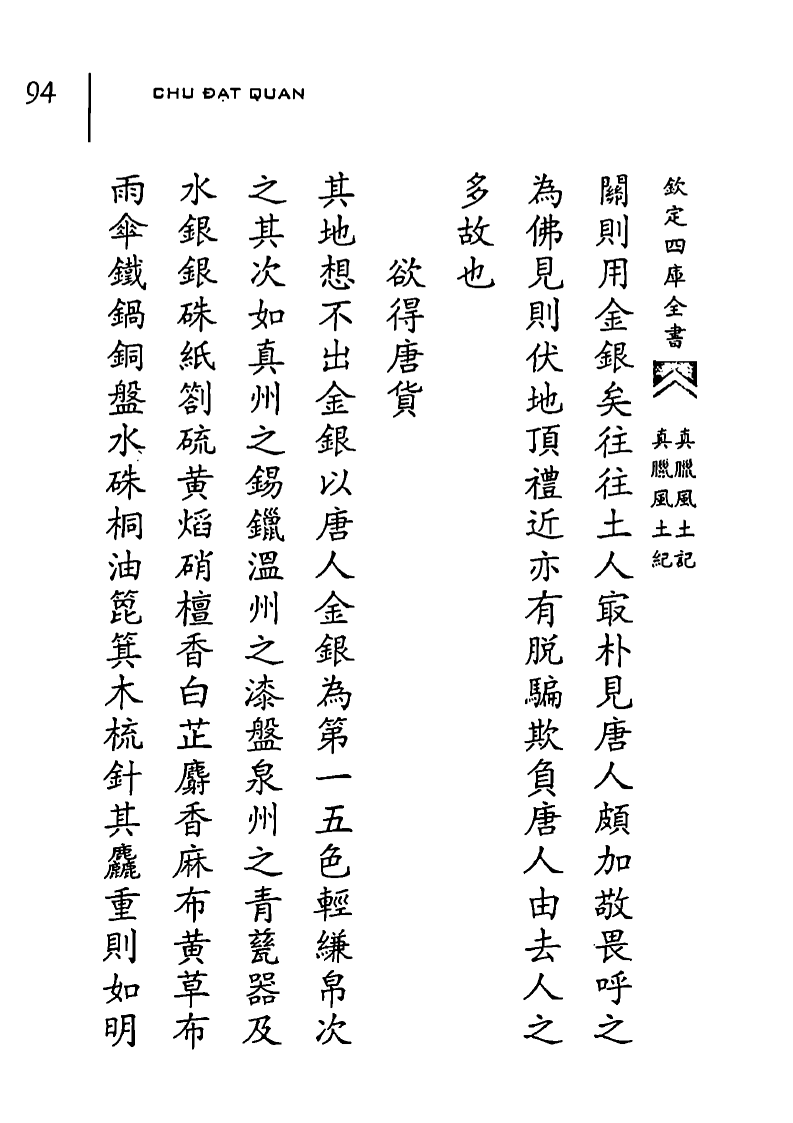 94
CHU ĐẠT QUAN
欽定四庫全書
真臘風土記
真臘風土紀
關則用金銀矣往往土人㝡朴見唐人頗加敬畏呼之
為佛見則伏地頂禮近亦有脱騙欺負唐人由去人之
多故也
欲得唐貨
其地想不出金銀以唐人金銀為第一五色輕縑帛次
之其次如真州之錫鑞溫州之漆盤泉州之青甆器及
水銀銀硃紙劄硫黄熖硝檀香白芷麝香麻布黄草布
雨傘鐵鍋銅盤水硃桐油篦箕木梳針其麤重則如明